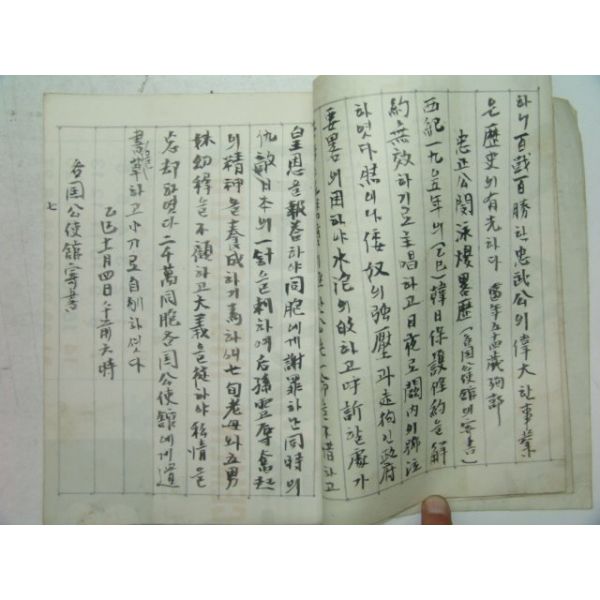 하니 百戰百勝한 忠武公의 偉大한 事業
은 歷史의 有光하다 當年五十四歲殉節
忠正公閔泳煥畧歷 (各国公使館에 寄書)
西紀一九〇五年의 (乙巳) 韓日保護條約을 解
約無效하기로 主唱하고 日夜로 闕内의 抑泣
하엿다 然이나 倭奴의 強壓과 走狗인 政府
要畧의 困하야 水泡의 歸하고 呼訴할 處가
皇恩을 報答하야 同胞에게 謝罪하난 同時의
仇敵日本의 一針을 刺하여 后孫靈辱奮起
의 精神을 養成하기 爲하새 七旬老母와 五男
妹幼穉을 不顧하고 大義을 徒하야 私情을
忘却하엿다 二千萬同胞各国公使館에게 遺
書를 草하고 小刀로 自刎하섯다
乙巳十一月四日 午前六時
各国公使館寄書
七